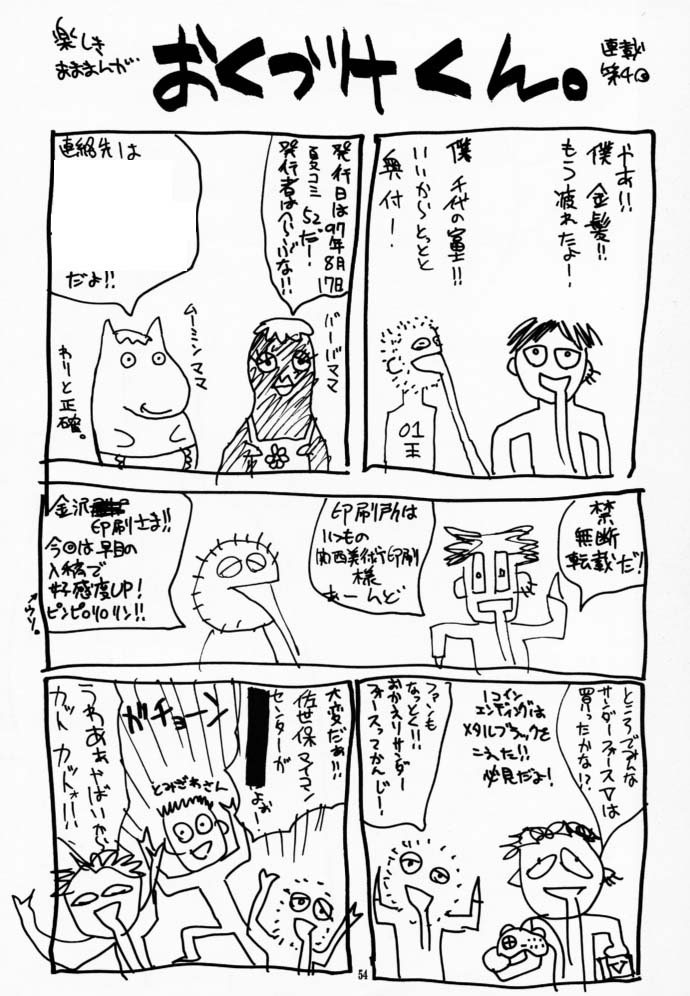 楽しき
おまんが
おくづけくん。
連載
第4回
やあ!!
僕 金髪!!
もう疲れたよー!
僕 千代の富士!!
いいからとっとと
奥付ー!
01
王
発行日は97年8月17日
夏コミ 52だー!
発行者は
連絡先は
だよ!!
バーバママ
ムーミンママ
わりと正確。
禁
無断
転載だ!
印刷所は
いつもの
関西美術印刷
様
あーんど
金沢
印刷さま!!
今回は早目の
入稿で
好感度UP!
ピンピロリロリン!!
ウソ。
ところでみんな
サンダーフォースⅤは
買ったかな!?
1コイン
エンディングは
メタルブラックを
こえた!!
必見だよ!
ファンも
なっとく!!
おかえりサンダー
フォースってかんじー!
大変だぁ!!!
佐世保マイコン
センターが
よぉ!
ガチョーン
とみざわさん
うわあぁやばいから
カット カットォ!!!
54